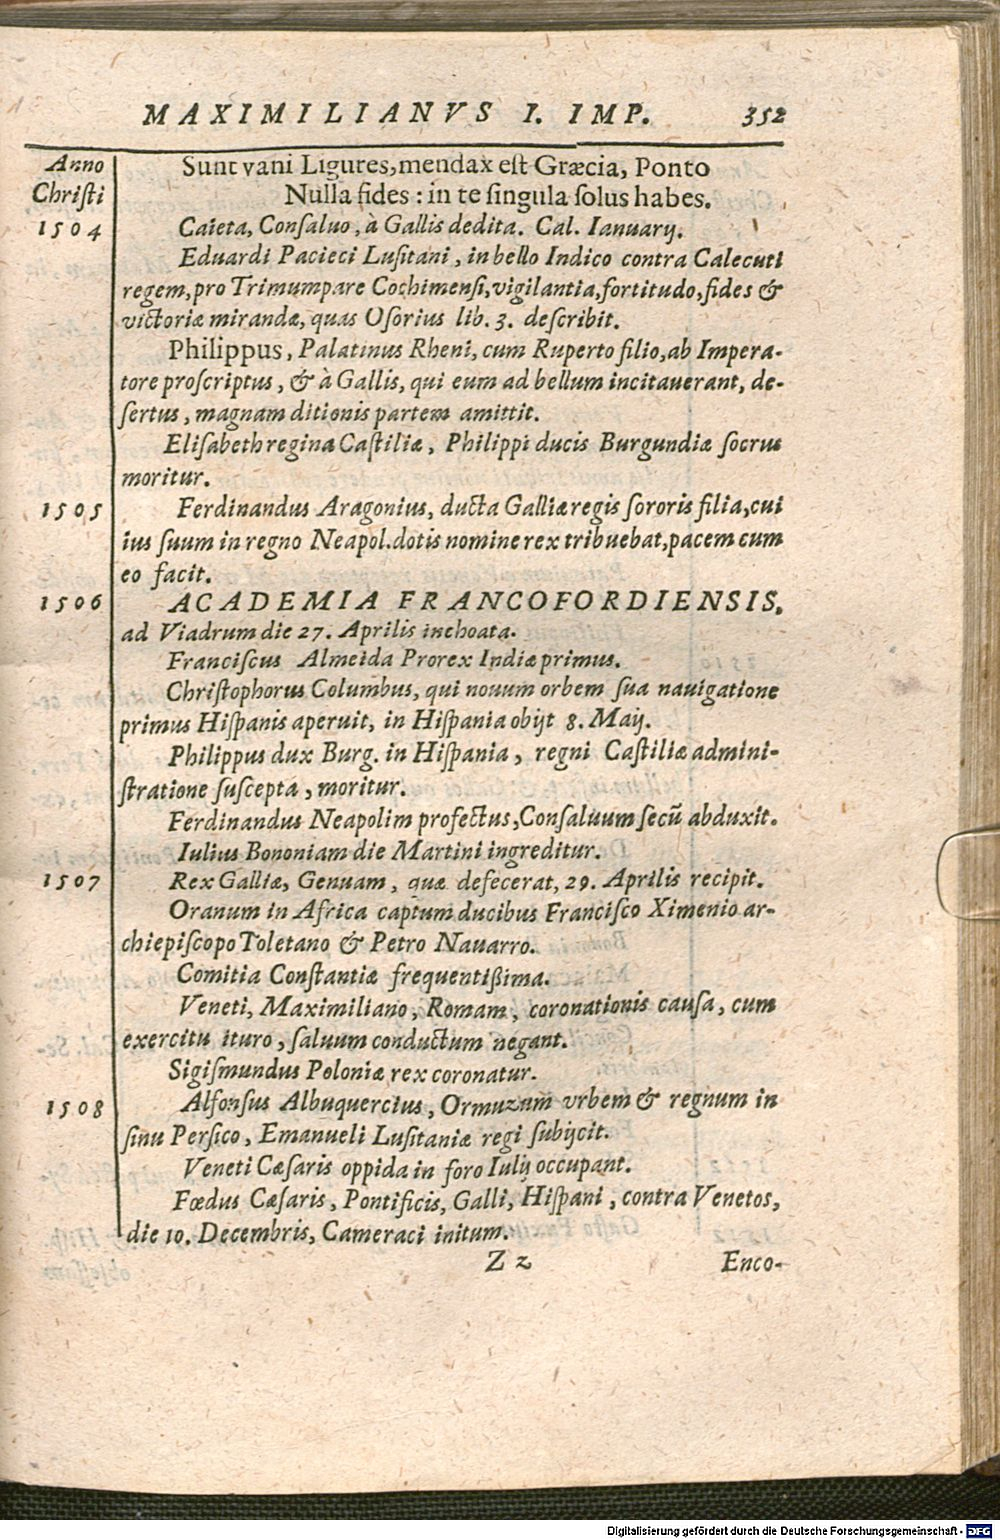 MAXIMILIANVS I. IMP. 352
Anno
Christi
Sunt vani Ligures, mendax est Græcia, Ponto
Nulla fides : in te singula solus habes.
1504 Caieta, Consaluo, à Gallis dedita. Cal. Ianuarij.
Eduardi Pacieci Lusitani, in bello Indico contra Calecuti
regem, pro Trimumpare Cochimensi, vigilantia, fortitudo, fides &
victoriæ mirandæ, quas Osorius lib. 3. describit.
Philippus, Palatinus Rheni, cum Ruperto filio, ab Impera-
tore proscriptus, & à Gallis, qui eum ad bellum incitauerant, de-
sertus, magnam ditionis partem amittit.
Elisabeth regina Castiliæ, Philippi ducis Burgundiæ socrus
moritur.
1505 Ferdinandus Aragonius, ducta Galliæ regis sororis filia, cui
ius suum in regno Neapol. dotis nomine rex tribuebat, pacem cum
eo facit.
1506 ACADEMIA FRANCOFORDIENSIS.
ad Viadrum die 27. Aprilis inchoata.
Franciscus Almeida Prorex Indiæ primus.
Christophorus Columbus, qui nouum orbem sua nauigatione
primus Hispanis aperuit, in Hispania obijt 8. Maij.
Philippus dux Burg. in Hispania, regni Castiliæ admini-
stratione suscepta, moritur.
Ferdinandus Neapolim profectus, Consaluum secū abduxit.
Iulius Bononiam die Martini ingreditur.
1507 Rex Galliæ, Genuam, quæ defecerat, 29. Aprilis recipit.
Oranum in Africa captum ducibus Francisco Ximenio ar-
chiepiscopo Toletano & Petro Nauarro.
Comitia Constantiæ frequentißima.
Veneti, Maximiliano, Romam, coronationis causa, cum
exercitu ituro, saluum conductum negant.
Sigismundus Poloniæ rex coronatur.
1508 Alfonsus Albuquercius, Ormuzum vrbem & regnum in
sinu Persico, Emanueli Lusitaniæ regi subijcit.
Veneti Cæsaris oppida in foro Iulij occupant.
Fœdus Cæsaris, Pontificis, Galli, Hispani, contra Venetos,
die 10. Decembris, Cameraci initum.
Z 2 Enco-
Digitalisierung gefördert durch die Deutsche Forschungsgemeinschaft - DFG